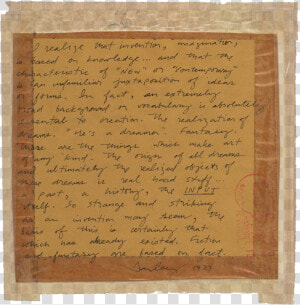 I realize that invention, imagination,
is based on knowledge... and that the
characteristic of "Now" or "Contemporary"
is an unfamiliar juxtaposition of ideas
or forms. In fact, an extremely
background or vocabulary is absolutely
to creation. The realization of
dreams. "He's a dreamer." Fantasy.
these are the things which make art
of any kind. The origin of all dreams
and ultimately the realized objects of
these dreams is real hard stuff...
fact, a history, the INPUT
itself. So strange and striking
as an invention many seem, the
basis of this is certainly that
which has already existed. Fiction
and fantasy are based on fact.